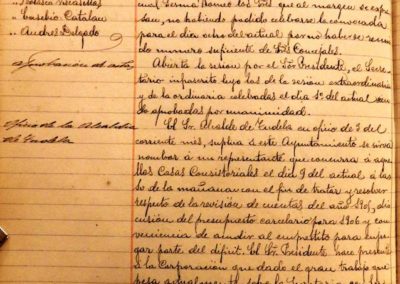 " Eusebio Catalan
" Andres Delgado
cual Lerma Romeo los Sres que al margen se expre
san, no habiendo podido celebrarse la convocada
para el dia ocho del actual por no haberse reuni
do número suficiente de Sres Concejales.
Aprobación de acta
Abierta la sesion por el Sor Presidente, el Secre
tario infrascrito leyó las de la sesion extraordinaria
y de la ordinaria celebradas el dia 1º del actual sien
do aprobadas por unanimidad.
Oficio de la Alcaldia
de Tudela
El Sr. Alcalde de Tudela en oficio de 3 del
corriente mes, suplica á este Ayuntamiento se sirva
nombrar á un representante que concurra á aque
llas Casas Consistoriales el dia 9 del actual á las
de la mañana con el fin de tratar y resolver
respecto de la revisión de cuentas del año 1905, dis
cusión del presupuesto carcelario para 1906 y con
veniencia de acudir al empréstito para enju
gar parte del déficit. El Sr. Presidente hace presente
á la Corporación que dado el gran trabajo que
pesa actualmente sobre la Secretaria